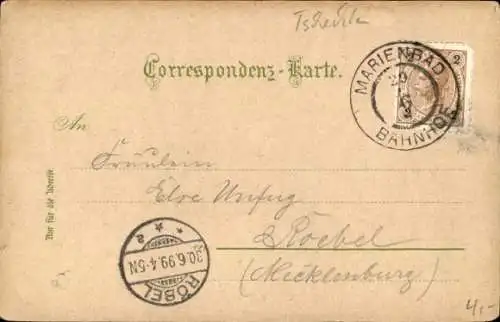 Tschech
Correspondenz-Karte.
2
MARIENBAD
29
BAHNHOF
An
Fräulein
Else Unfug
Roebel
(Mecklenburg)
Nur für die Adresse
30.6.99.4-5N
RÖBEL
* * a
4,-